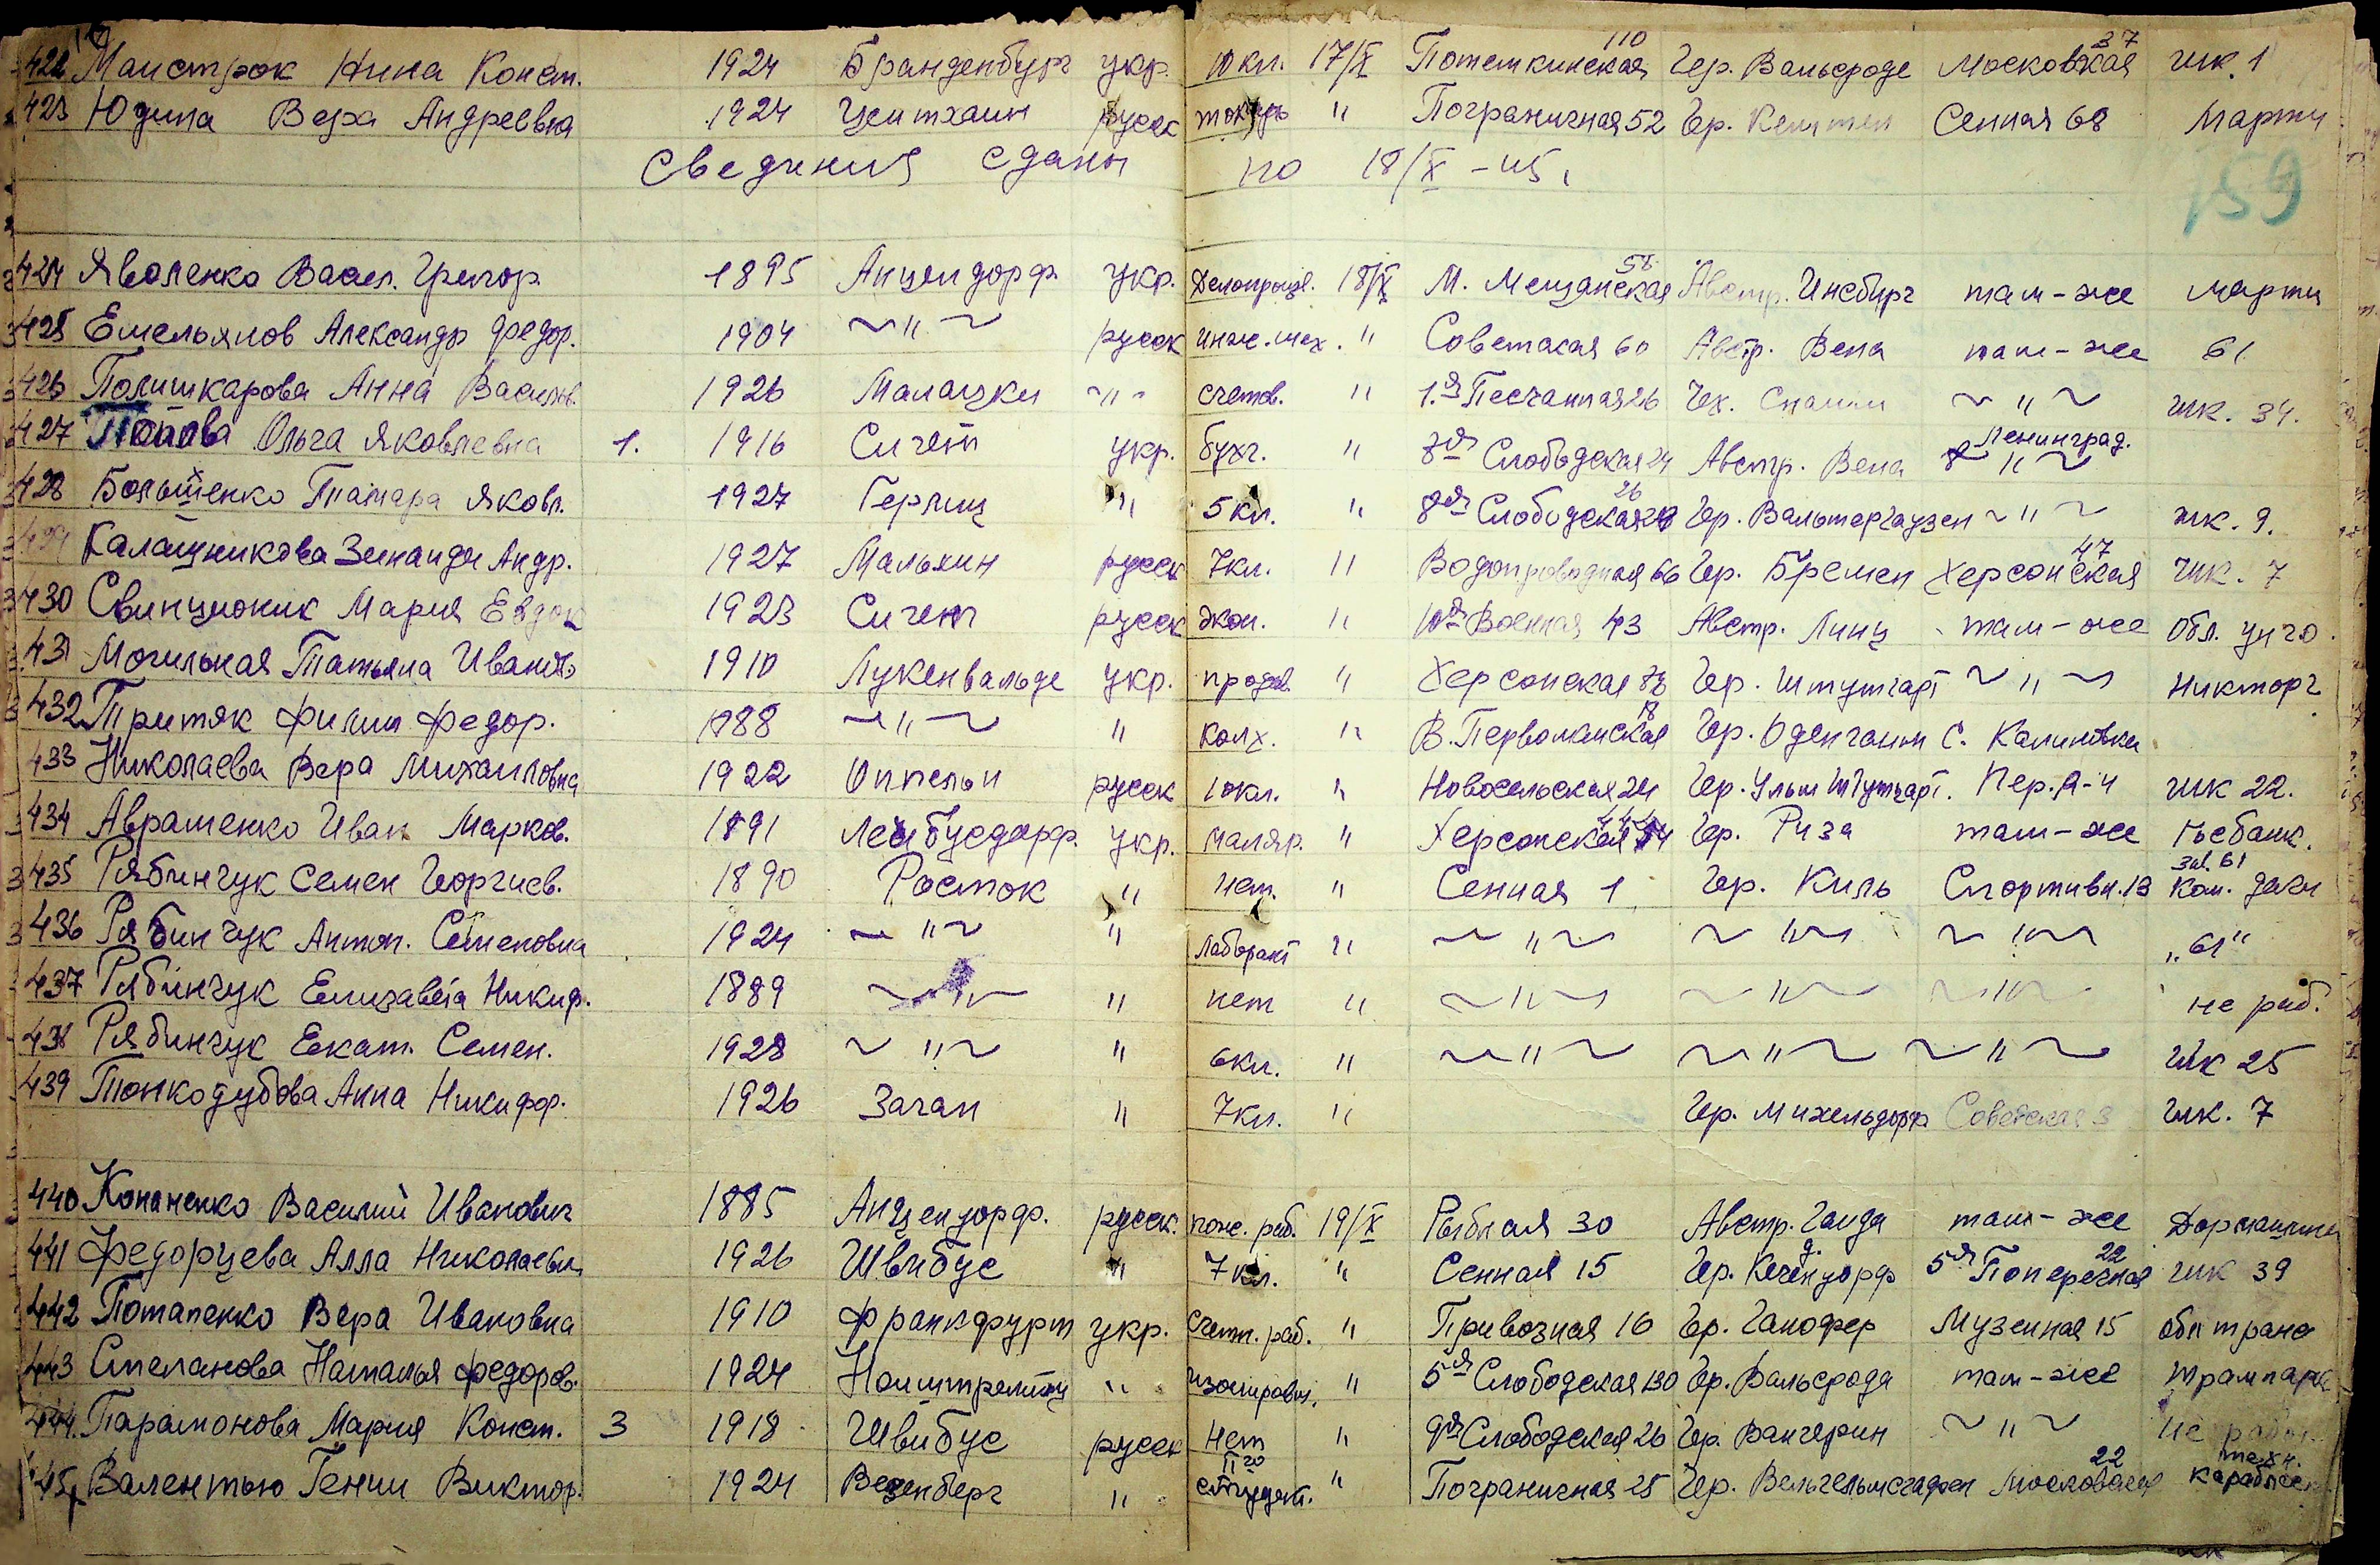 422 Маистрюк Нина Конст. 1924 Бранденбург укр. 10 кл. 17/X Потемкинская 110 Гер. Вальсроде Московская 37 шк. 1
423 Юдина Вера Андреевна 1924 Цеитхаин русск токарь " Пограничная 52 Гер. Сенная 68 Марти
Сведения сданы по 18/X - 45,
159
424 Яволенко Васил. Григор. 1895 Анцендорф укр. Делопроизв. 18/X М. Мещанская 58 Австр. Инсбург там-же марти
425 Емельянов Александр Федор. 1904 ~"~ русск инж. мех. " Советская 60 Австр. Вена там-же 61
426 Полишкарова Анна Васильв. 1926 Малацки ~"~ счетов. " 1.я Песчанная 26 Чех. ~"~ шк. 34.
427 Попова Ольга Яковлевна 1. 1916 Сигет укр. бухг. " 8я Слободская 24 Австр. Вена Ленинград. ~"~
428 Большенко Тамара Яковл. 1927 Герлиц " 5 кл. " 8я Слободская 26 Гер. Вальтергаузен ~"~ шк. 9.
429 Калашникова Зинаида Андр. 1927 Мальхин русск 7 кл. " Водопроводная 66 Гер. Бремен Херсонская 47 шк. 7
430 Свинционик Мария Евдок 1923 Сигет русск экон. " 10я Военная 43 Австр. Линц там-же Обл. уч го.
431 Могильная Татьяна Ивановн 1910 Лукенвальде укр. продав. " Херсонская 78 Гер. Штутгарт ~"~ Никторг
432 Притяк Филип Федор. 1888 ~"~ " колх. " В. Перволамская 18 Гер. Оденгаим с. Калиновка
433 Николаева Вера Михаиловна 1922 Оппельн русск 10 кл. " Новосельская 24 Гер. Ульм Штутгарт. Пер. Я-4 шк 22.
434 Авраменко Иван Марков. 1891 Леибусдорф. укр. маляр. " Херсонская Гер. Риза там-же Госбанк.
435 Рябинчук Семен Георгиев. 1890 Росток " нет. " Сенная 1 Гер. Киль Спортивн. 13 Зав. 61 Ком. дачи
436 Рябинчук Антон. Семеновна 1924 ~"~ " Лаборант " ~"~ ~"~ ~"~ „61"
437 Рябинчук Елизавета Никиф. 1889 ~"~ " нет " ~"~ ~"~ ~"~ не раб.
438 Рябинчук Екат. Семен. 1928 ~"~ " 6 кл. " ~"~ ~"~ ~"~ шк 25
439 Тонкодубова Анна Никифор. 1926 Заган " 7 кл. " Гер. Михельдорф Советская 3 шк. 7
440 Кононенко Василий Иванович 1885 Анцендорф. русск. пож. раб. 19/X Рыбная 30 Австр. Гаида там-же
441 Федорцева Алла Николаевн. 1926 Швибус " 7 кл. " Сенная 15 Гер. Кечендорф 5я Поперечная 22 шк 39
442 Потапенко Вера Ивановна 1910 Франкфурт укр. счетн. раб. " Привозная 16 Гер. Ганофер Музейная 15 обл транс
443 Степанова Наталья Федоров. 1924 Ноиштрелитц " " 5я Слободская 130 Гер. Вальсрода там-же трампарк
444. Парамонова Мария Конст. 3 1918 Швибус русск нет " 9я Слободская 26 Гер. Вангерин ~"~ не работ
445 Валентью Генни Виктор. 1924 Везенберг " студент. " Пограничная 25 Гер. Вельгельмсгафен Московская 22 техн. кораблест